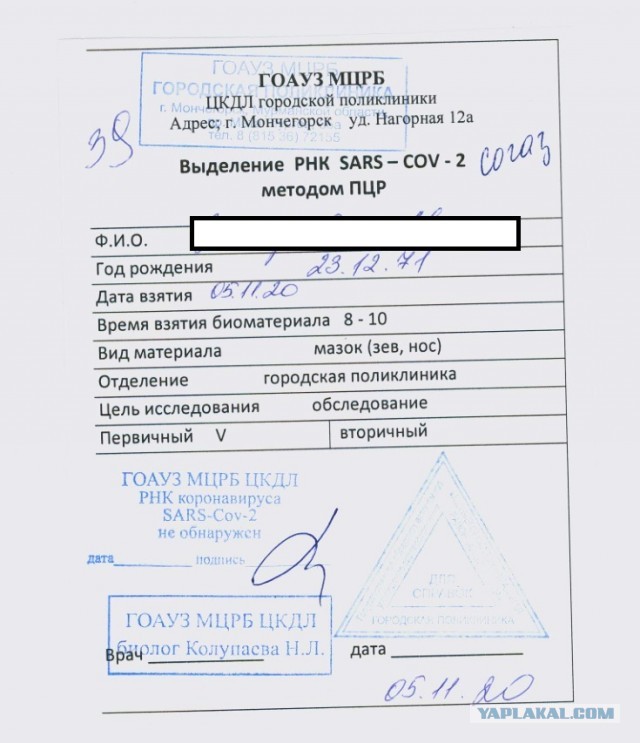 ГОАУЗ МЦРБ
ГОРОДСКАЯ ПОЛИКЛИНИКА
г. Мончегорск, Мурманской области
тел. 8 (815 36) 72155
ГОАУЗ МЦРБ
ЦКДЛ городской поликлиники
Адрес; г. Мончегорск уд. Нагорная 12а
39
Выделение РНК SARS – COV - 2
методом ПЦР
согаз
Ф.И.О.
Год рождения 23.12.71
Дата взятия 05.11.20
Время взятия биоматериала 8 - 10
Вид материала мазок (зев, нос)
Отделение городская поликлиника
Цель исследования обследование
Первичный V вторичный
ГОАУЗ МЦРБ ЦКДЛ
РНК коронавируса
SARS-Cov-2
не обнаружен
дата________ подпись
ДЛЯ
СПРАВОК
ГОРОДСКАЯ ПОЛИКЛИНИКА
ГОАУЗ МЦРБ ЦКДЛ
биолог Колупаева Н.Л.
Врач ____________ дата ____________
05.11.20
YAPLAKAL.COM